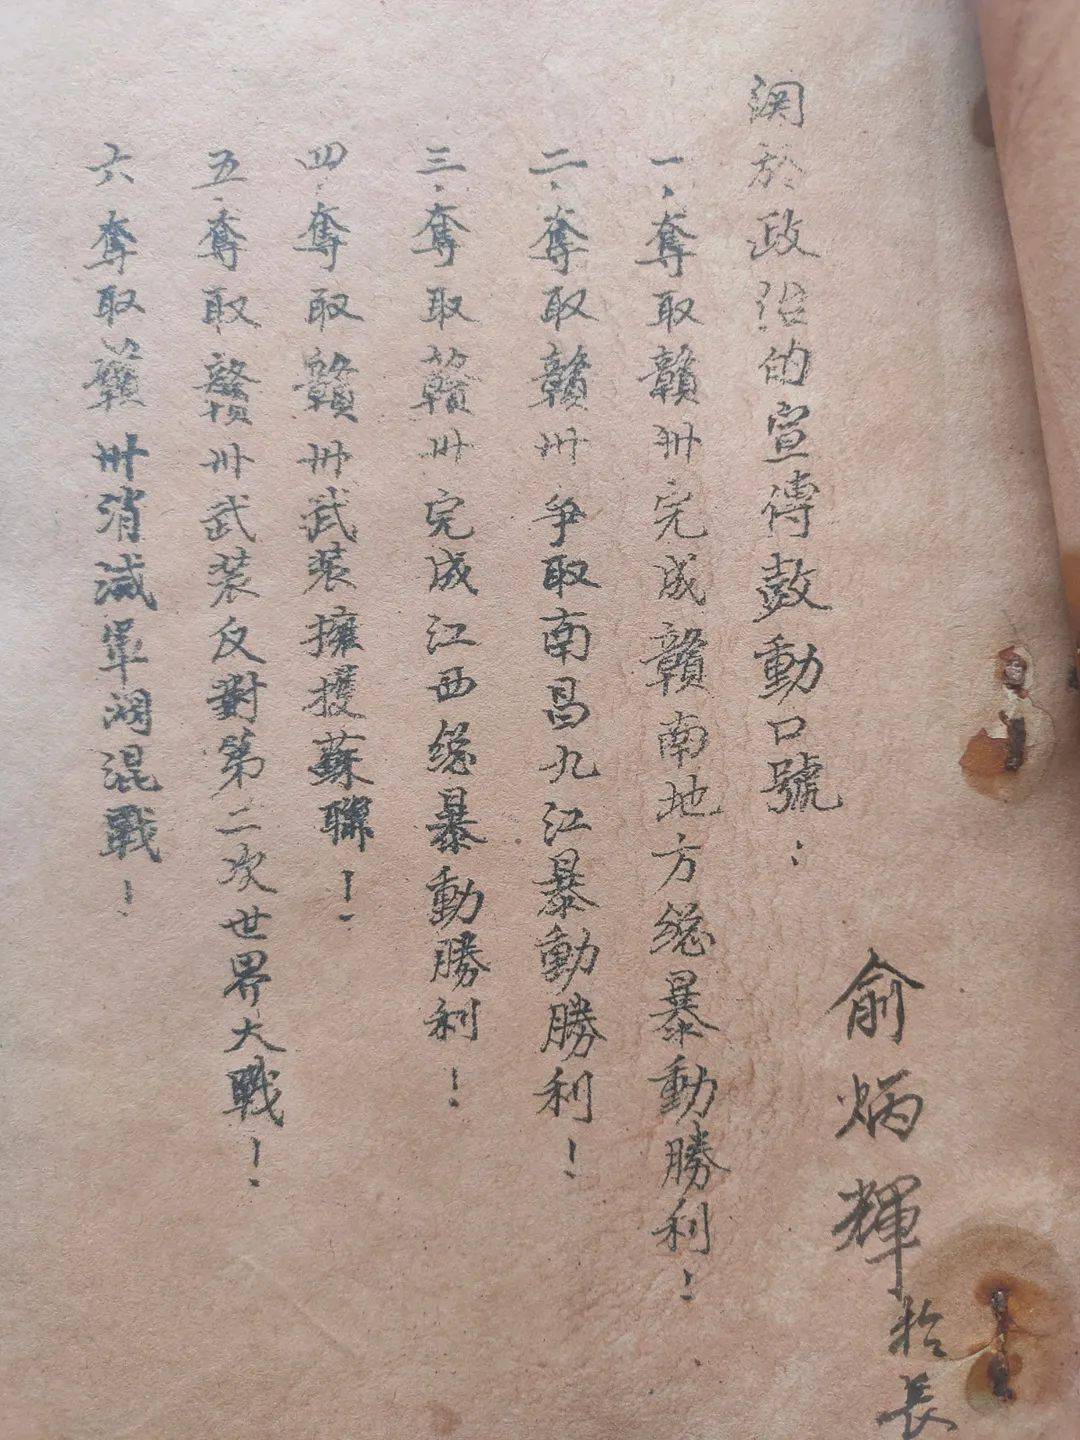 関於政治的宣傳鼓動口號：
一、奪取贛州完成贛南地方総暴動勝利！
二、奪取贛州爭取南昌九江暴動勝利！
三、奪取贛州完成江西総暴動勝利！
四、奪取贛州武装擁護蘇聯！
五、奪取贛州武装反對第二次世界大戰！
六奪取贛州消滅軍閥混戰！
俞炳輝
於長